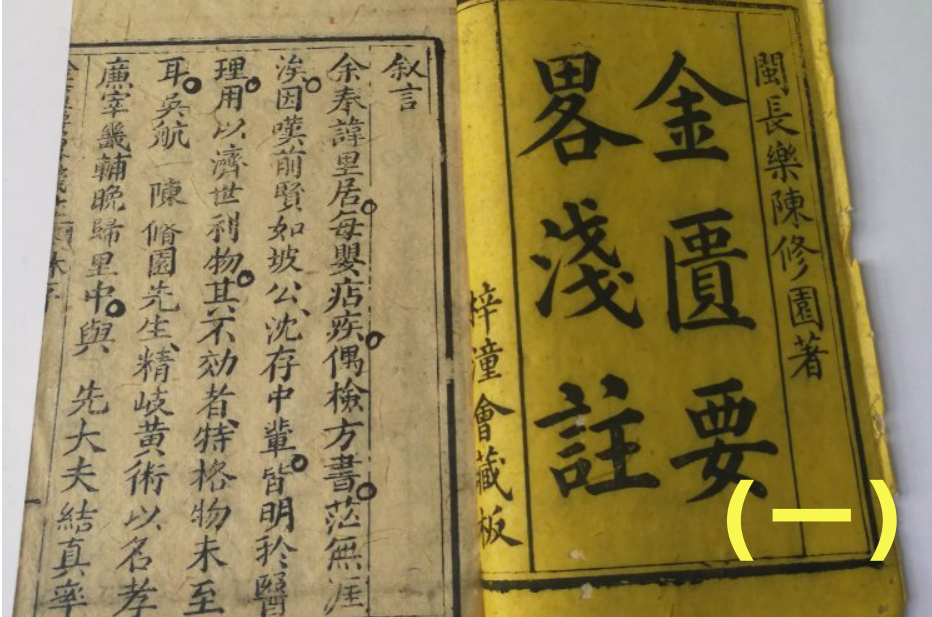 閩長樂陳修園著
金匱要
畧淺註
梓潼會藏板
(一)
叙言
余奉諱里居。每嬰痁疾。偶檢方書。茫無涯
涘。因嘆前賢如坡公、沈存中輩。皆明於醫
理。用以濟世利物。其不効者、特格物未至
耳。吳航 陳脩園先生、精岐黃術以名孝
廉宰畿輔晚歸里中。與 先大夫結真率